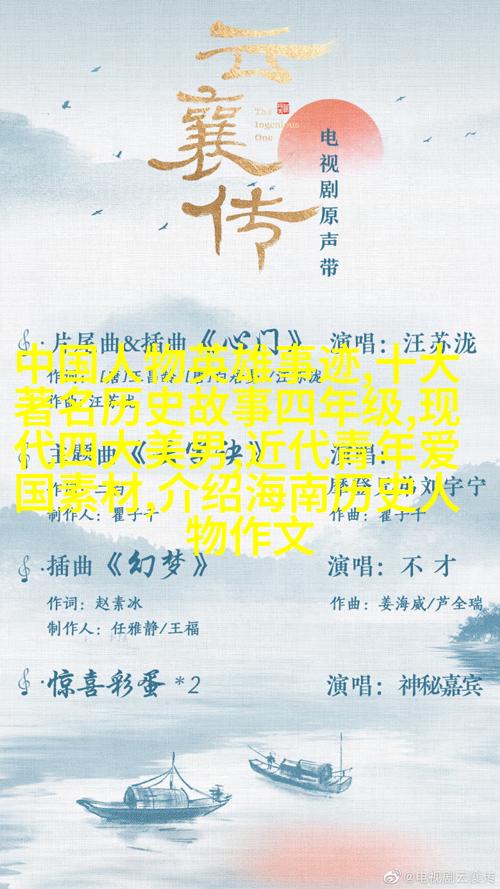 云襄传
The
Ingenious
One
电视剧原声带
片尾曲&插曲《心门》 演唱：汪苏泷
作曲：汪苏泷
中国人物英雄事迹,十大
著名历史故事四年级,现
代四大美男,近代青年爱
国素材,介绍海南历史人
物作文
主题曲
刘宇宁
制作人：瞿子千
插曲《幻梦》 演唱：不才
作词：赵素冰 作曲：姜海威/芦全瑞
制作人：任雅静/王福
惊喜彩蛋 *2 演唱：神秘嘉宾
@电视剧云襄传